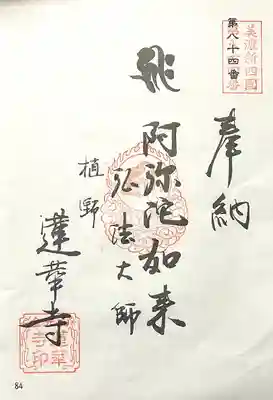 美濃新四國
第八十四番
奉納
飛阿弥陀如来
弘法大師
植野
蓮華寺
蓮華寺印
84